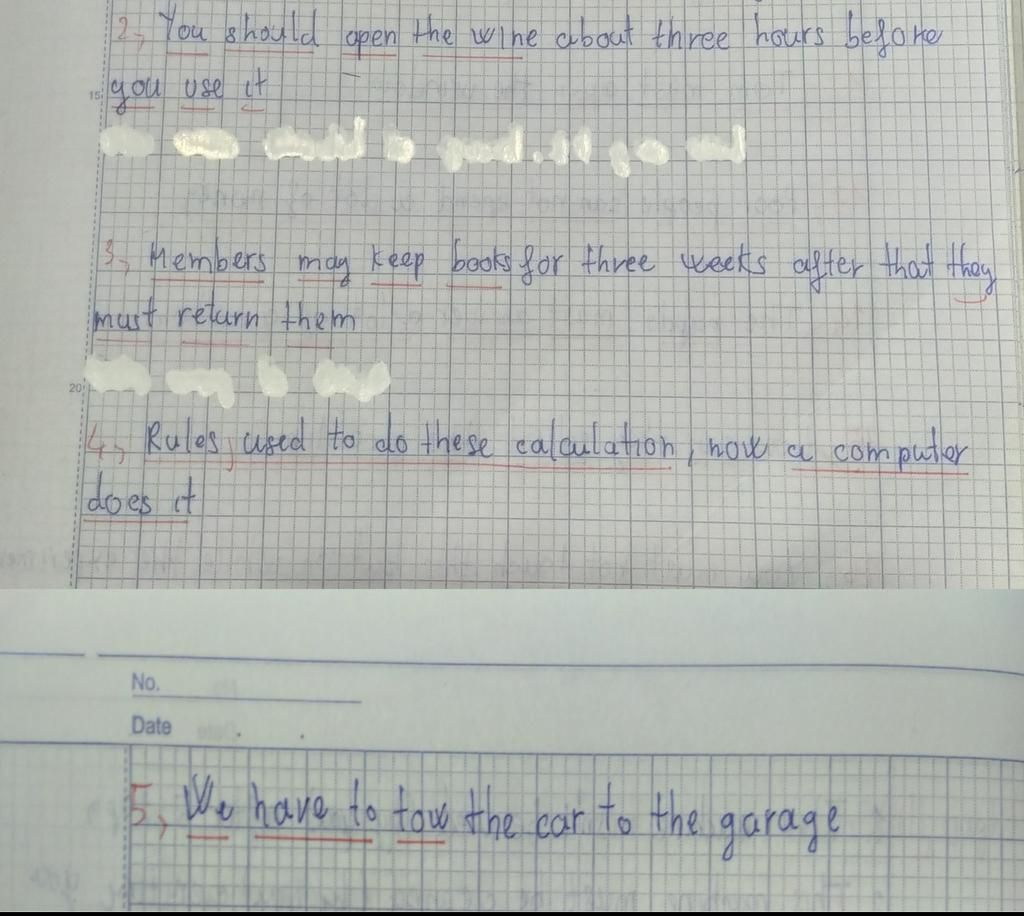 2, You should open the wine about three hours before
15
you use it
3, Members may keep books for three weeks after that they
must return them
20
4, Rules, used to do these calculation, now a computer
does it
No.
Date
5, We have to tow the car to the garage